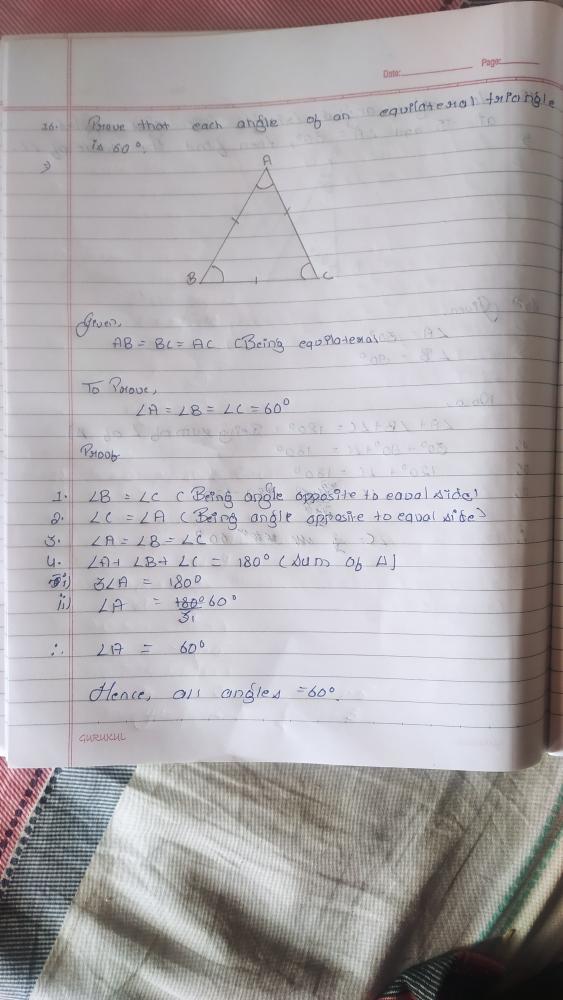 Date: Page:
16. Prove that each angle of an equilateral triangle
is 60°.
A
B C
Given,
AB = BC = AC (Being equilateral
To Prove,
∠A = ∠B = ∠C = 60°
Proof
1. ∠B = ∠C (Being angle opposite to equal side)
2. ∠C = ∠A (Being angle opposite to equal side)
3. ∠A = ∠B = ∠C
4. ∠A + ∠B + ∠C = 180° (Sum of Δ]
i) 3∠A = 180°
ii) ∠A = 180° 60°
3 1
∴ ∠A = 60°
Hence, all angles = 60°.
GURUKUL